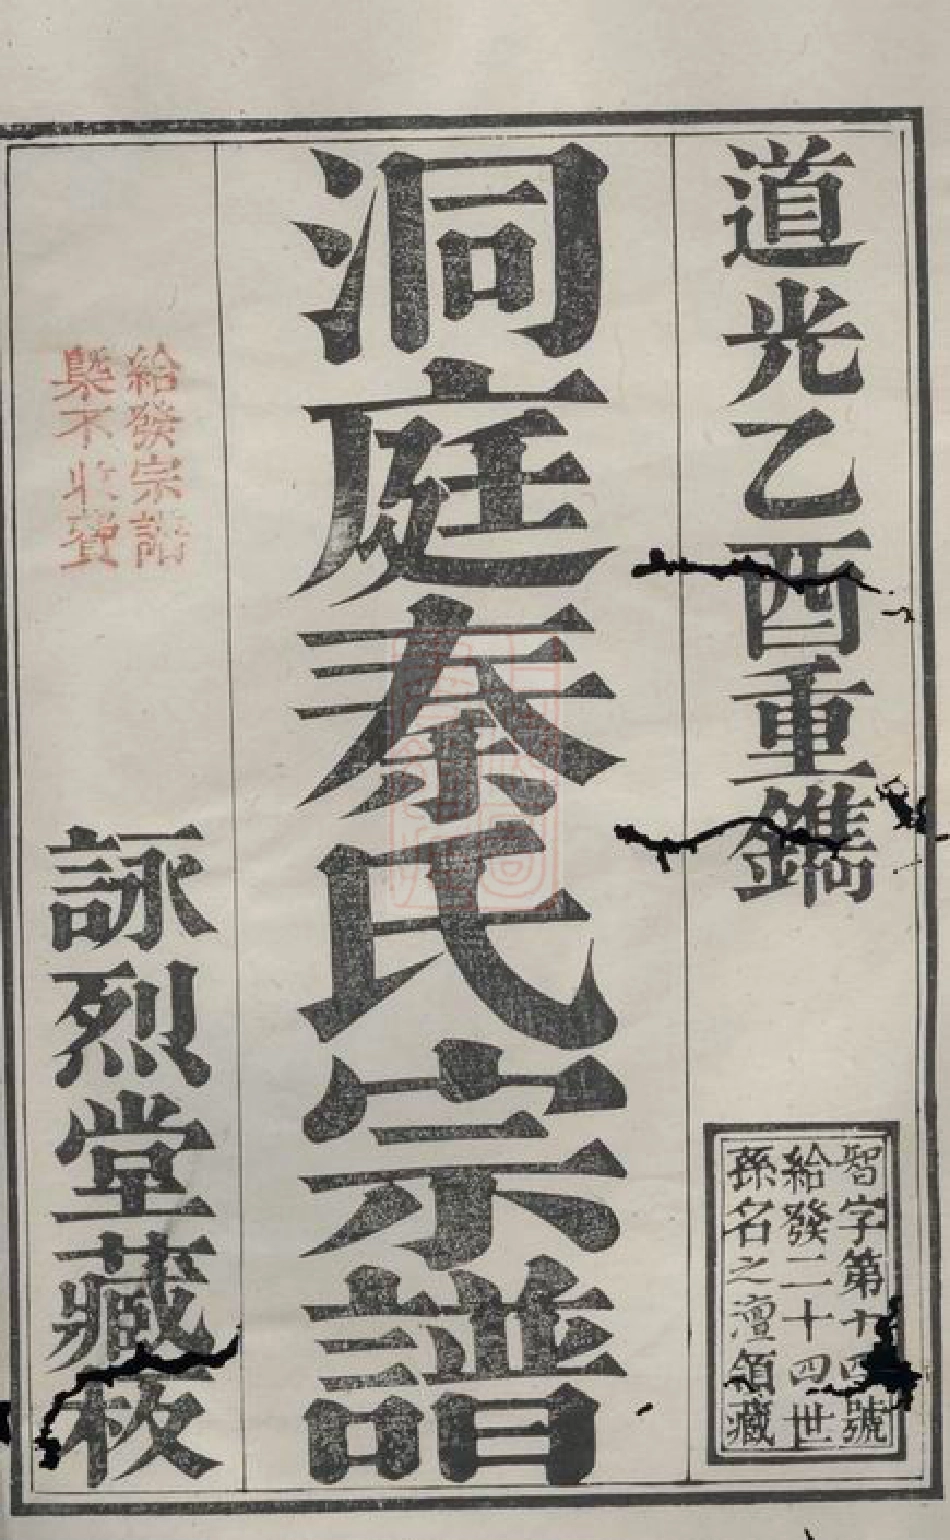 道光乙酉重鐫
智字第十四號
給發二十四世
孫名之澶領藏
洞庭秦氏宗譜
給發宗譜
槩不收費
詠烈堂藏板